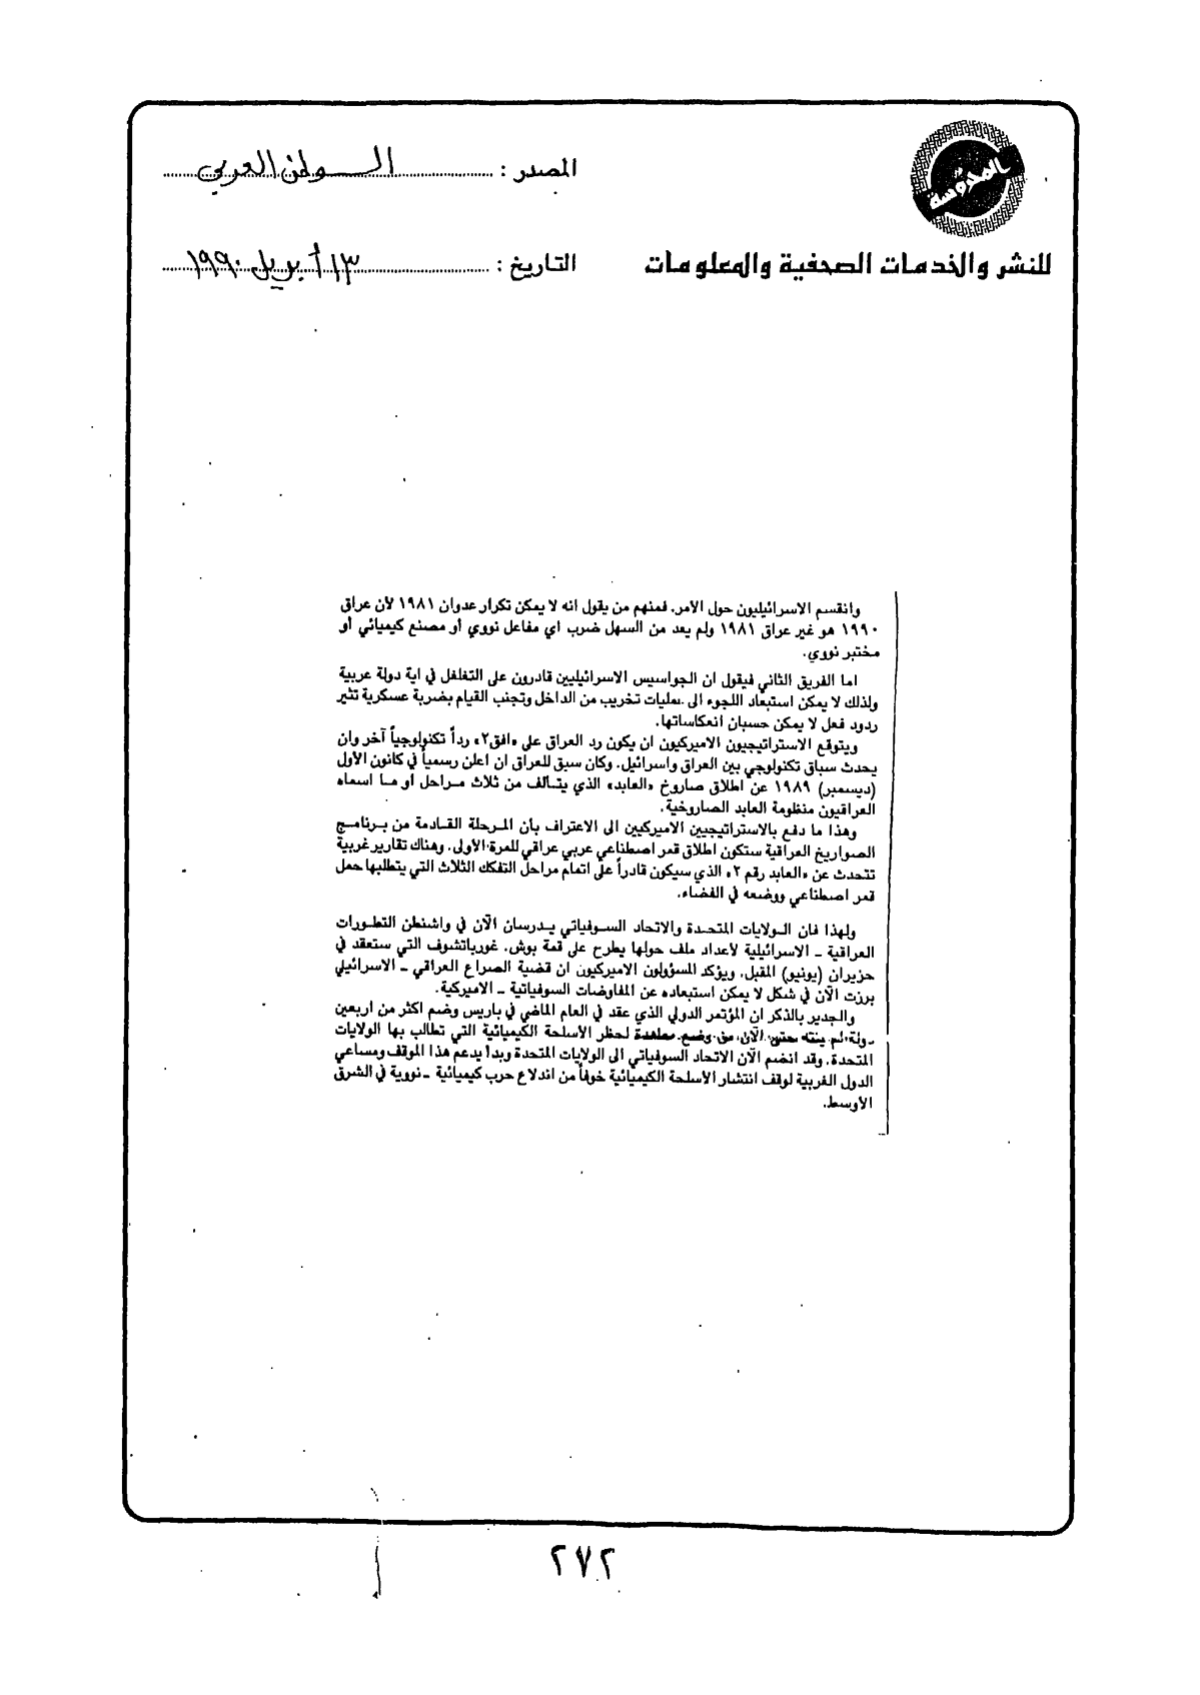 المحروسة
المصدر : الوطن العربي
للنشر والخدمات الصحفية والمعلومات
التاريخ : ١٣ أبريل ١٩٩٠
وانقسم الاسرائيليون حول الأمر. فمنهم من يقول انه لا يمكن تكرار عدوان ١٩٨١ لأن عراق
١٩٩٠ هو غير عراق ١٩٨١ ولم يعد من السهل ضرب اي مفاعل نووي أو مصنع كيميائي أو
مختبر نووي.
اما الفريق الثاني فيقول ان الجواسيس الاسرائيليين قادرون على التغلغل في اية دولة عربية
ولذلك لا يمكن استبعاد اللجوء الى عمليات تخريب من الداخل وتجنب القيام بضربة عسكرية تثير
ردود فعل لا يمكن حسبان انعكاساتها.
ويتوقع الاستراتيجيون الاميركيون ان يكون رد العراق على «افق٢» رداً تكنولوجياً آخر وان
يحدث سباق تكنولوجي بين العراق واسرائيل. وكان سبق للعراق ان اعلن رسمياً في كانون الأول
(ديسمبر) ١٩٨٩ عن اطلاق صاروخ «العابد» الذي يتألف من ثلاث مراحل أو ما اسماه
العراقيون منظومة العابد الصاروخية.
وهذا ما دفع بالاستراتيجيين الاميركيين الى الاعتراف بأن المرحلة القادمة من برنامج
الصواريخ العراقية ستكون اطلاق قمر اصطناعي عربي عراقي للمرة الأولى. وهناك تقارير غربية
تتحدث عن «العابد رقم ٢» الذي سيكون قادراً على اتمام مراحل التفكك الثلاث التي يتطلبها حمل
قمر اصطناعي ووضعه في الفضاء.
ولهذا فان الولايات المتحدة والاتحاد السوفياتي يدرسان الآن في واشنطن التطورات
العراقية - الاسرائيلية لأعداد ملف حولها يطرح على قمة بوش. غورباتشوف التي ستعقد في
حزيران (يونيو) المقبل. ويؤكد المسؤولون الاميركيون ان قضية الصراع العراقي - الاسرائيلي
برزت الآن في شكل لا يمكن استبعاده عن المفاوضات السوفياتية - الاميركية.
والجدير بالذكر ان المؤتمر الدولي الذي عقد في العام الماضي في باريس وضم اكثر من اربعين
دولة لم ينته حتى الآن من وضع معاهدة لحظر الأسلحة الكيميائية التي تطالب بها الولايات
المتحدة. وقد انضم الآن الاتحاد السوفياتي الى الولايات المتحدة وبدأ يدعم هذا الموقف ومساعي
الدول الغربية لوقف انتشار الأسلحة الكيميائية خوفاً من اندلاع حرب كيميائية - نووية في الشرق
الأوسط.
٢٧٢